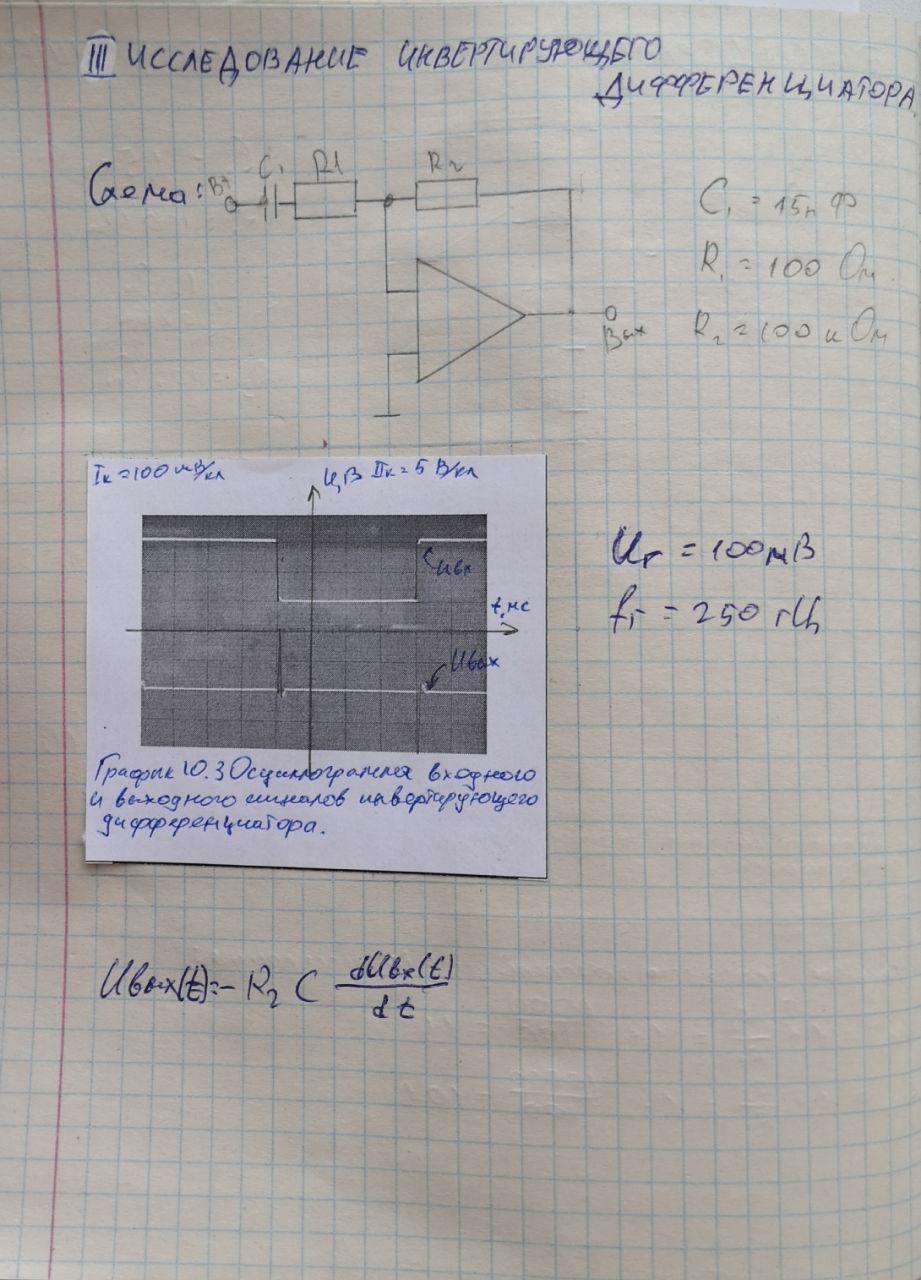 III ИССЛЕДОВАНИЕ ИНВЕРТИРУЮЩЕГО
ДИФФЕРЕНЦИАТОРА.
Схема: Вх C₁ R1 R₂
C₁ = 15нФ
R₁ = 100 Ом
Вых R₂ = 100 кОм
Iк = 100 мВ/кл U, В IIк = 5 В/кл
Uвх
t, мс
Uвых
График 10.3 Осциллограмма входного
и выходного сигналов инвертирующего
дифференциатора.
Uг = 100мВ
fг = 250 гЦ
Uвых(t) = - R₂ C dUвх(t)/dt